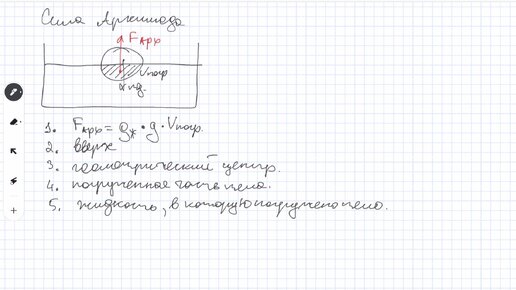 Сила Архимеда
Fарх
Vпогр
ж
1. Fарх = ρж • g • Vпогр.
2. вверх
3. геометрический центр.
4. погруженная часть тела.
5. жидкость, в которую погружено тело.